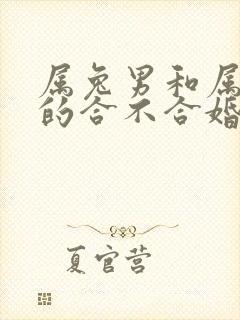 属兔男和属
的合不合婚
夏官营